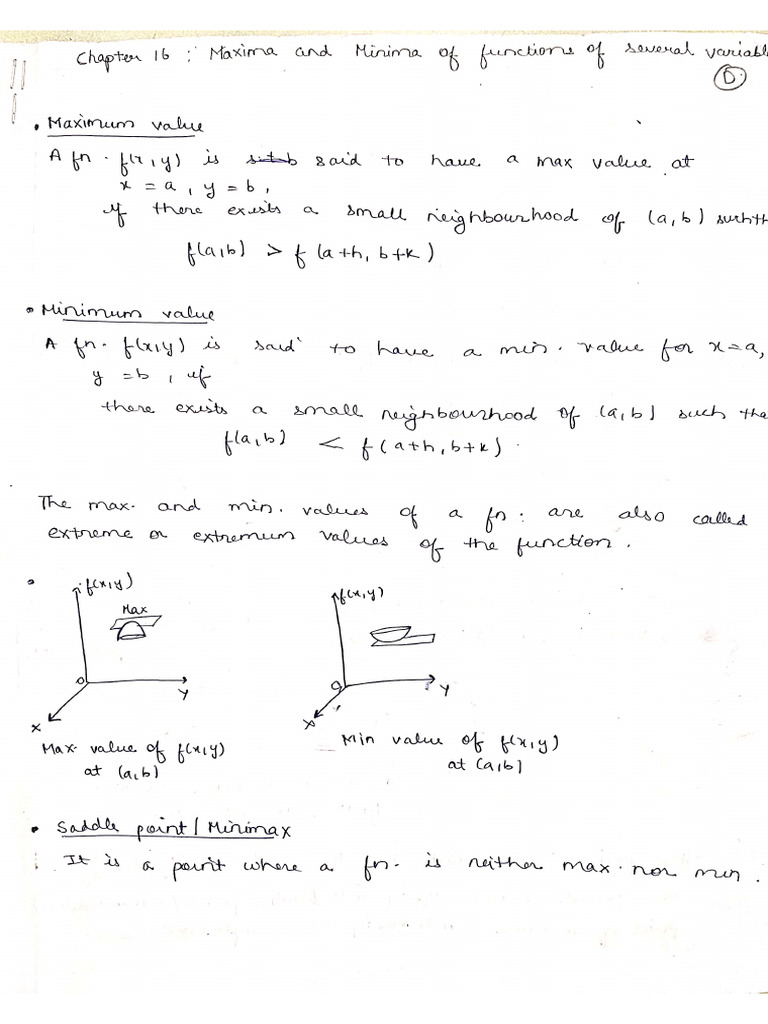 Chapter 16 : Maxima and Minima of functions of several variabl
①
• Maximum value
A fn. f(x,y) is said to have a max value at
x = a, y = b,
if there exists a small neighbourhood of (a,b) such th
f(a,b) > f(a+h, b+k)
• Minimum value
A fn. f(x,y) is said to have a min. value for x=a,
y = b, if
there exists a small neighbourhood of (a,b) such tha
f(a,b) < f(a+h, b+k).
The max. and min. values of a fn. are also called
extreme or extremum values of the function.
f(x,y)
Max
O
Y
X
f(x,y)
O
Y
X
Max. value of f(x,y)
at (a,b)
Min value of f(x,y)
at (a,b)
• Saddle point/Minimax
It is a point where a fn. is neither max. nor min.